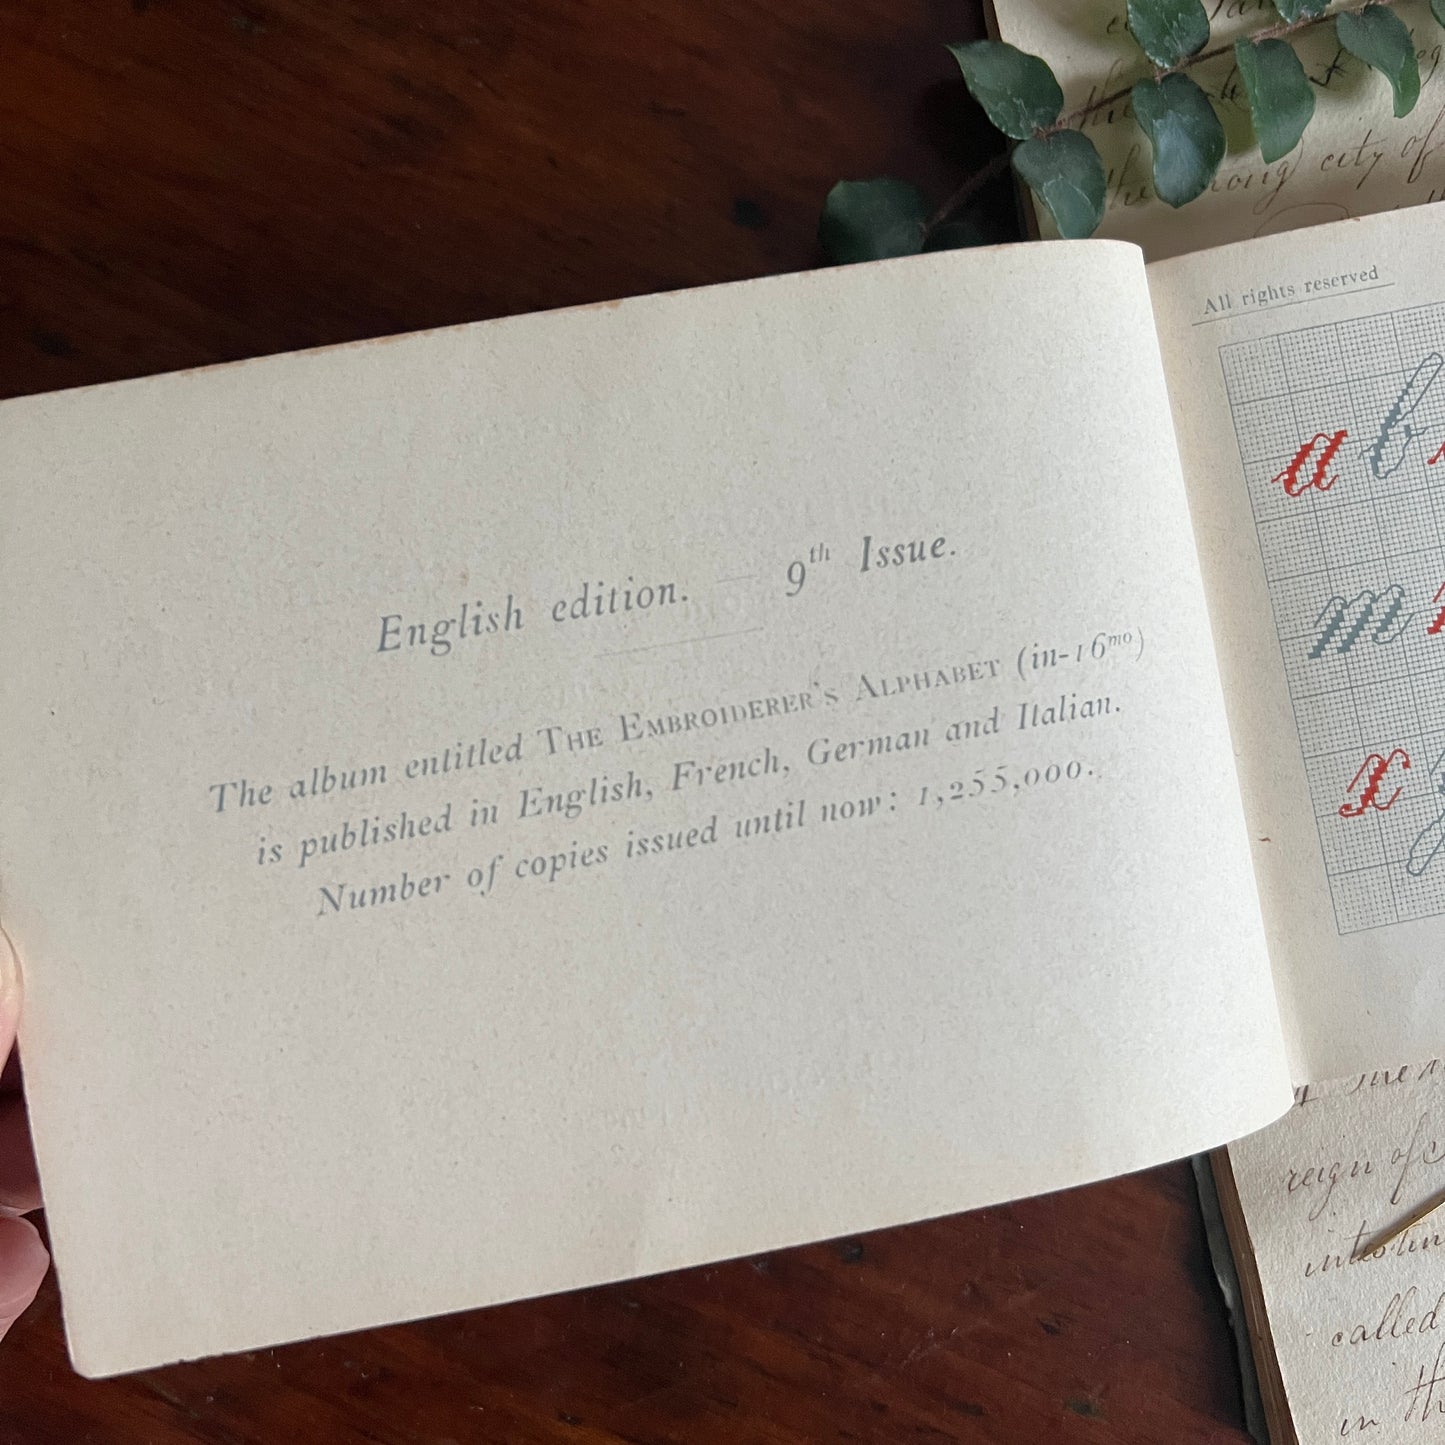 English edition. — 9th Issue.
The album entitled THE EMBROIDERER'S ALPHABET (in-16mo)
is published in English, French, German and Italian.
Number of copies issued until now: 1,255,000.
All rights reserved
a b
m
x
city of
reign of
called
in th